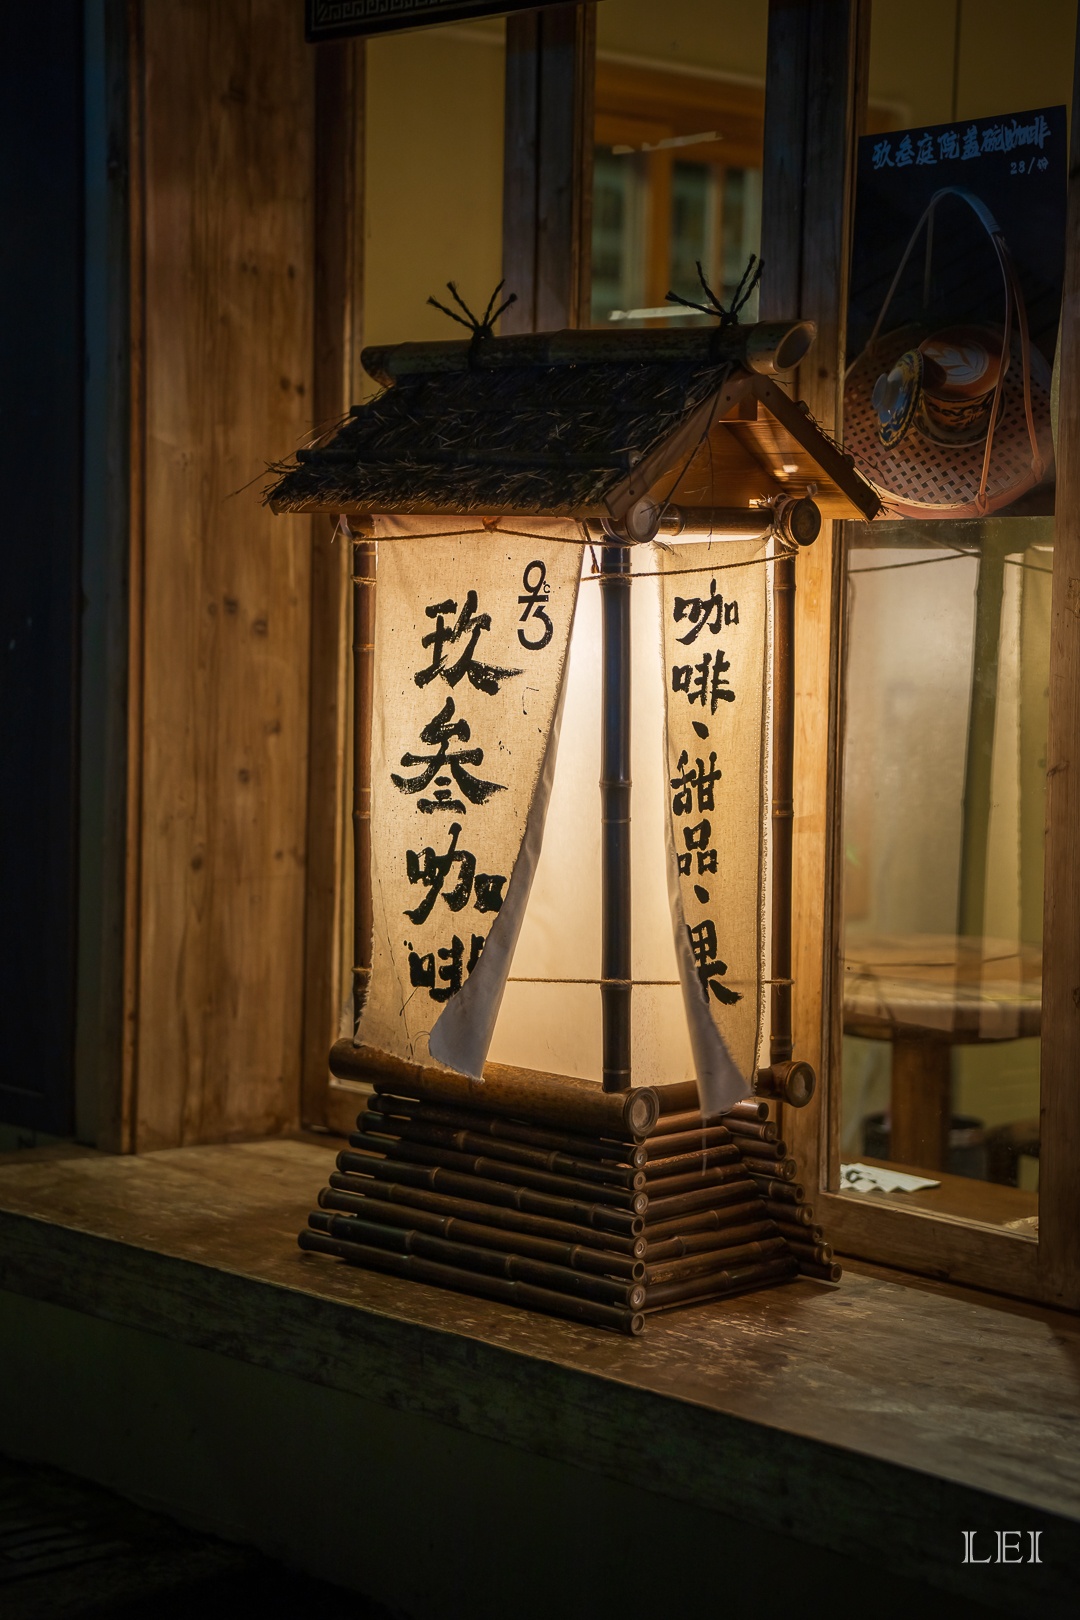 玖叁庭院蓋碗咖啡
23/份
93℃
玖叁咖啡
咖啡、甜品、果
LEI